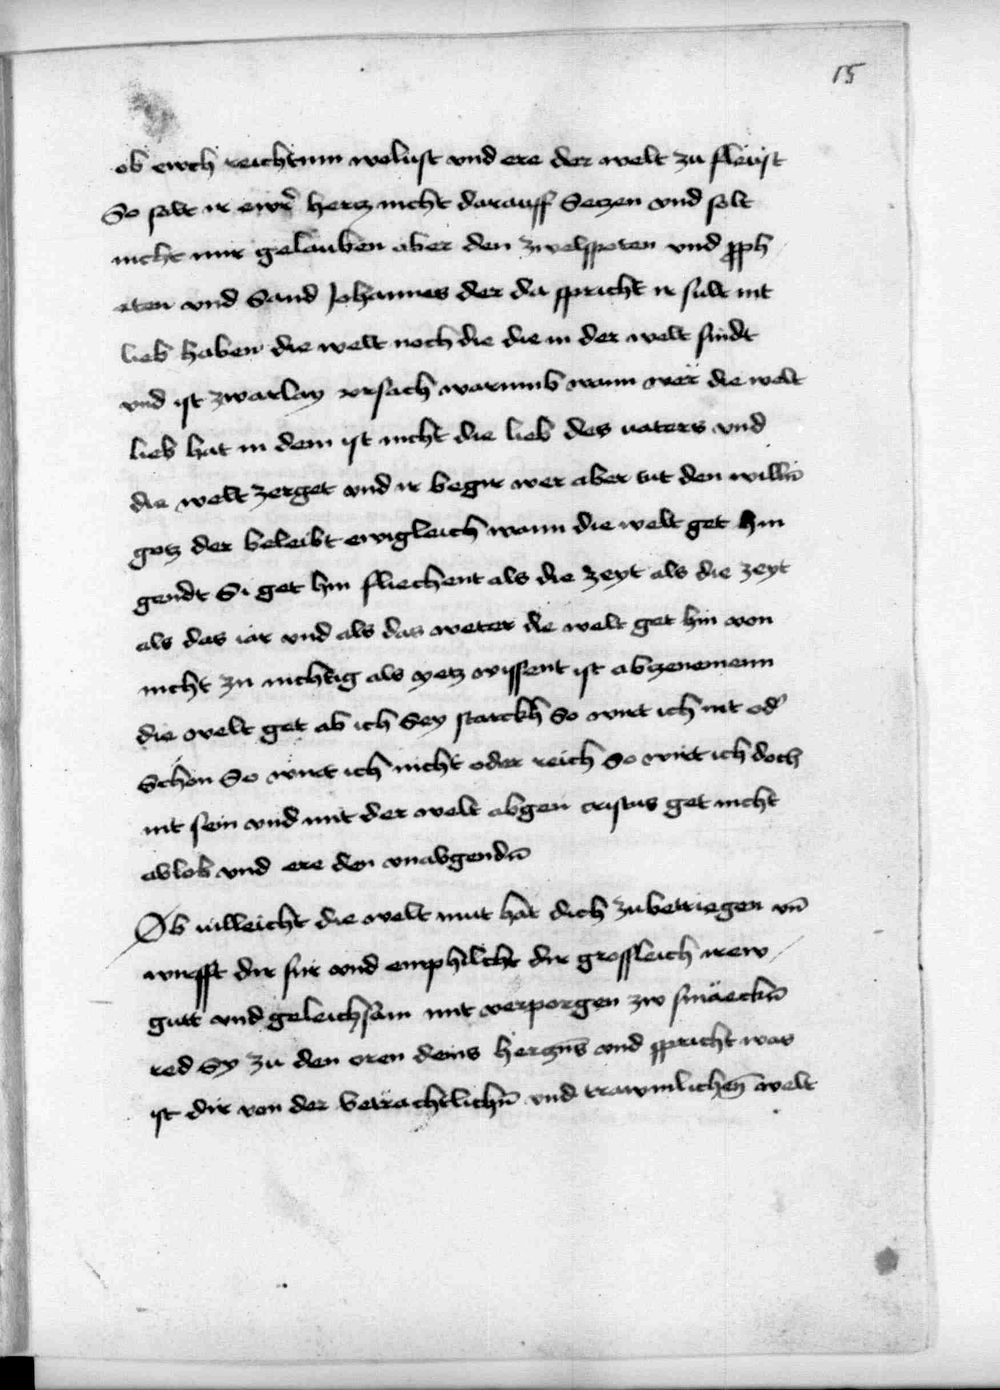 15
ob ewch reichtum welust vnd ere der welt zu fleust
So solt ir ewr̄ hertz nicht darauff Seczen vnd solt
nicht mir gelauben aber den zwelfpoten vnd pph
eten vnd Sand Johannes der da spricht ir sült nit
lieb haben die welt noch die die in der welt sindt
vnd ist zwarlay vrsach warumb wann wer die welt
lieb hat in dem ist nicht die lieb des uaters vnd
die welt zerget vnd ir begir wer aber tut den willn̄
gotz der beleibt ewigleich wann die welt get hin
gendt Si get hin fliechent als die zeyt als die zeyt
als das iar vnd als das weter die welt get hin von
nicht zu nichtig als yetz wissent ist abzenemenn
die welt get ab ich Sey starckh So wirt ich nit od̄
Schön So wirt ich nicht oder reich So wirt ich doch
nit sein vnd mit der welt abgen cristus get nicht
ab lob vnd ere den vnabgendn̄
Ob uilleicht die welt mut hat dich zu betriegen vn̄
wirfft dir für vnd emphilcht dir grossleich irew
gutt vnd geleichsam mit verporgen zw smäeckn̄
red Sy zu den oren deins herczn̄s vnd spricht was
ist dir von der betrachtlichn̄ vnd trawmlichen̄ welt